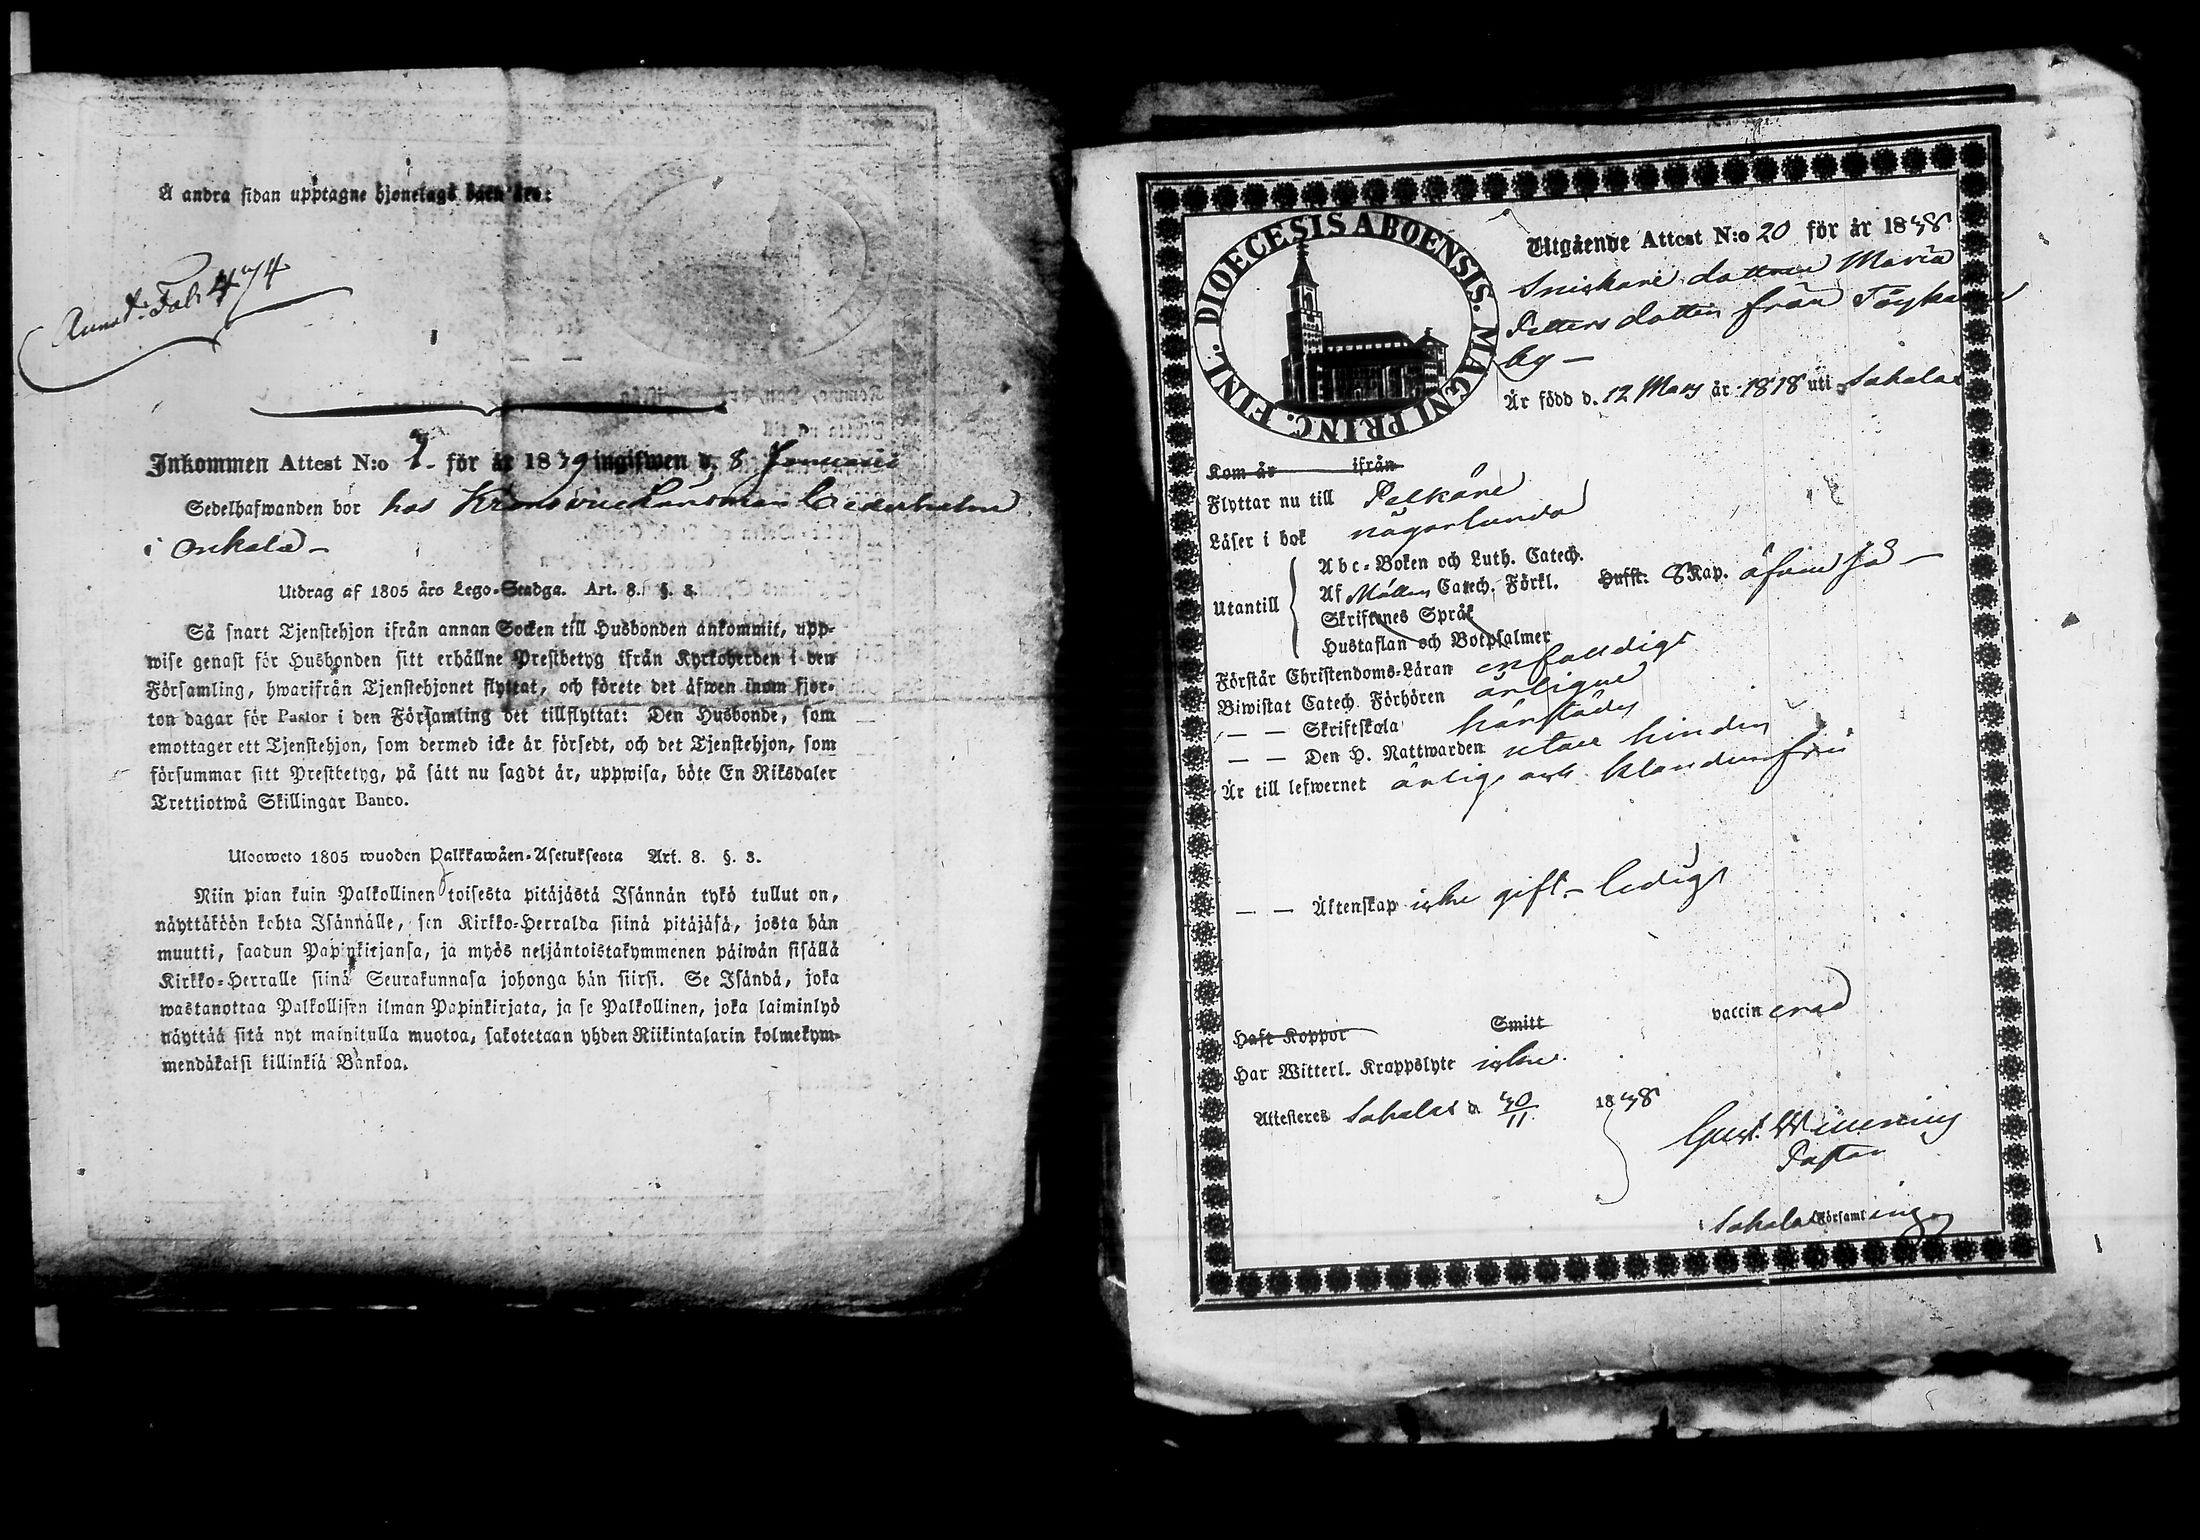 Å andra sidan upptagne hjonelags barn äro:
Annot: Fol: 474
Inkommen Attest N:o 1. för år 1839 ingifwen d. 8 Januari
Sedelhafwanden bor hos Kronolänsman Cederholm
i Onkala –
Utdrag af 1805 års Lego-Stadga. Art. 8. §. 3.
Så snart Tjenstehjon ifrån annan Socken till Husbonden ankommit, upp-
wise genast för Husbonden sitt erhållne Prestbetyg ifrån Kyrkoherden i den
Församling, hwarifrån Tjenstehjonet flyttat, och förete det äfwen inom fjor-
ton dagar för Pastor i den Församling det tillflyttat: Den Husbonde, som
emottager ett Tjenstehjon, som dermed icke är försedt, och det Tjenstehjon, som
försummar sitt Prestbetyg, på sätt nu sagdt är, uppwisa, böte En Riksdaler
Trettiotwå Skillingar Banco.
Ulosweto 1805 wuoden Palkkawäen-Asetuksesta Art. 8. §. 3.
Niin pian kuin Palkollinen toisesta pitäjästä Isännän tykö tullut on,
näyttäköön kohta Isännälle, sen Kirkko-Herralda siinä pitäjäsä, josta hän
muutti, saadun Papinkirjansa, ja myös neljäntoistakymmenen päiwän sisällä
Kirkko-Herralle siinä Seurakunnasa johonga hän siirsi. Se Isändä, joka
wastanottaa Palkollisen ilman Papinkirjata, ja se Palkollinen, joka laiminlyö
näyttää sitä nyt mainitulla muotoa, sakotetaan yhden Riikintalarin kolmekym-
mendäkaksi killinkiä Bankoa.
DIOECESIS ABOENSIS. MAGNI PRINC. FINL.
Utgående Attest N:o 20 för år 1838
Snickare dottren Maria
Petters dotter från Töykänä
by –
Är född d. 12 Mars år 1818 uti Sahalax
Kom år ifrån
Flyttar nu till Pelkäne
Läser i bok någorlunda
Utantill
Abc-Boken och Luth. Catech.
Af Möllers Catech. Förkl. Hufst. 8 Kap. äfven så –
Skriftenes Språk
Hustaflan och Botpsalmer
Förstår Christendoms-Läran enfaldigt
Biwistat Catech. Förhören årligen
— — Skriftskola härstädes
— — Den H. Nattwarden utan hinder
Är till lefwernet ärlig och klanderfri
— — Äktenskap icke gift – ledig
Haft Koppor Smitt vaccinerad
Har Witterl. Kroppslyte icke.
Attesteres Sahalax d. 30/11 1838
Gust. Winning
Pastor
i Sahalax Församling